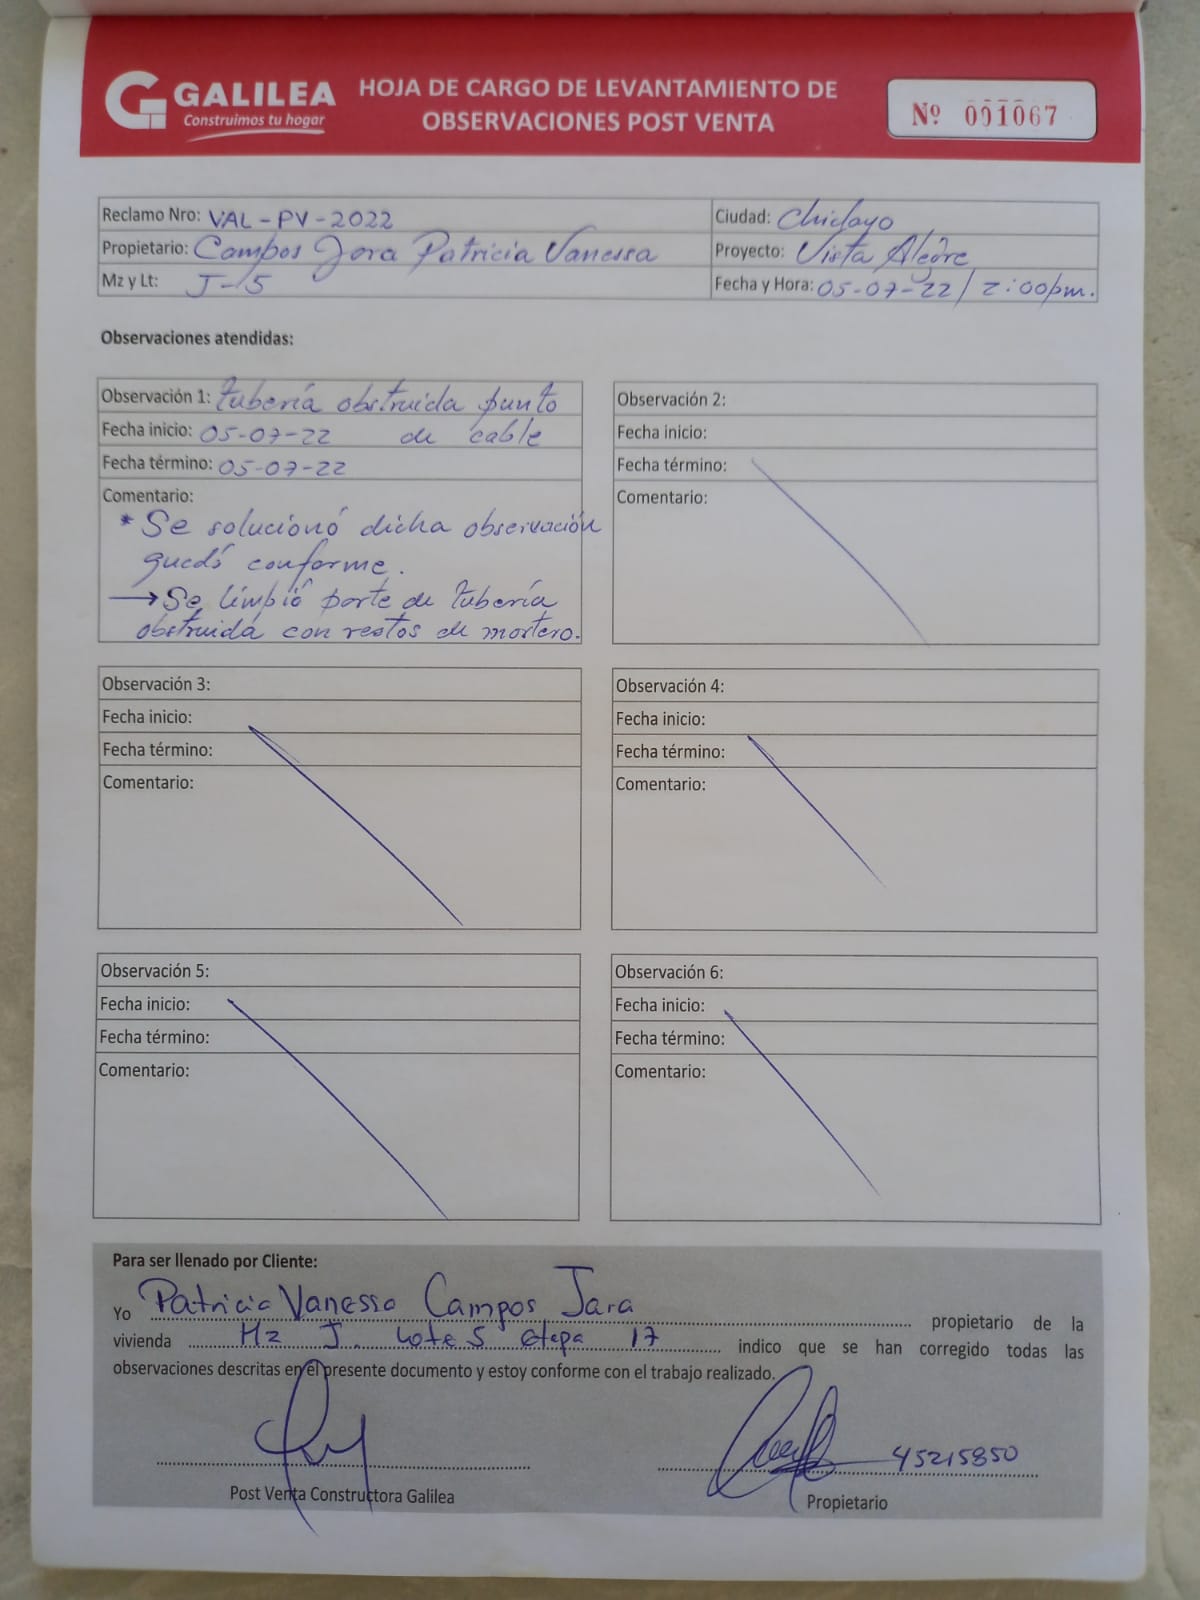 GALILEA
Construimos tu hogar
HOJA DE CARGO DE LEVANTAMIENTO DE
OBSERVACIONES POST VENTA
Nº 001067
Reclamo Nro: VAL-PV-2022
Ciudad: Chiclayo
Propietario: Campos Jara Patricia Vanessa
Proyecto: Vista Alegre
Mz y Lt: J-5
Fecha y Hora: 05-07-22 / 2:00pm.
Observaciones atendidas:
Observación 1: tubería obstruida punto
Fecha inicio: 05-07-22 de cable
Fecha término: 05-07-22
Comentario:
* Se solucionó dicha observación
quedó conforme.
→ Se limpió parte de tubería
obstruida con restos de mortero.
Observación 2:
Fecha inicio:
Fecha término:
Comentario:
Observación 3:
Fecha inicio:
Fecha término:
Comentario:
Observación 4:
Fecha inicio:
Fecha término:
Comentario:
Observación 5:
Fecha inicio:
Fecha término:
Comentario:
Observación 6:
Fecha inicio:
Fecha término:
Comentario:
Para ser llenado por Cliente:
Yo Patricia Vanessa Campos Jara propietario de la
vivienda Mz J. Lote 5 etapa 17 indico que se han corregido todas las
observaciones descritas en el presente documento y estoy conforme con el trabajo realizado.
45215850
Post Venta Constructora Galilea
Propietario